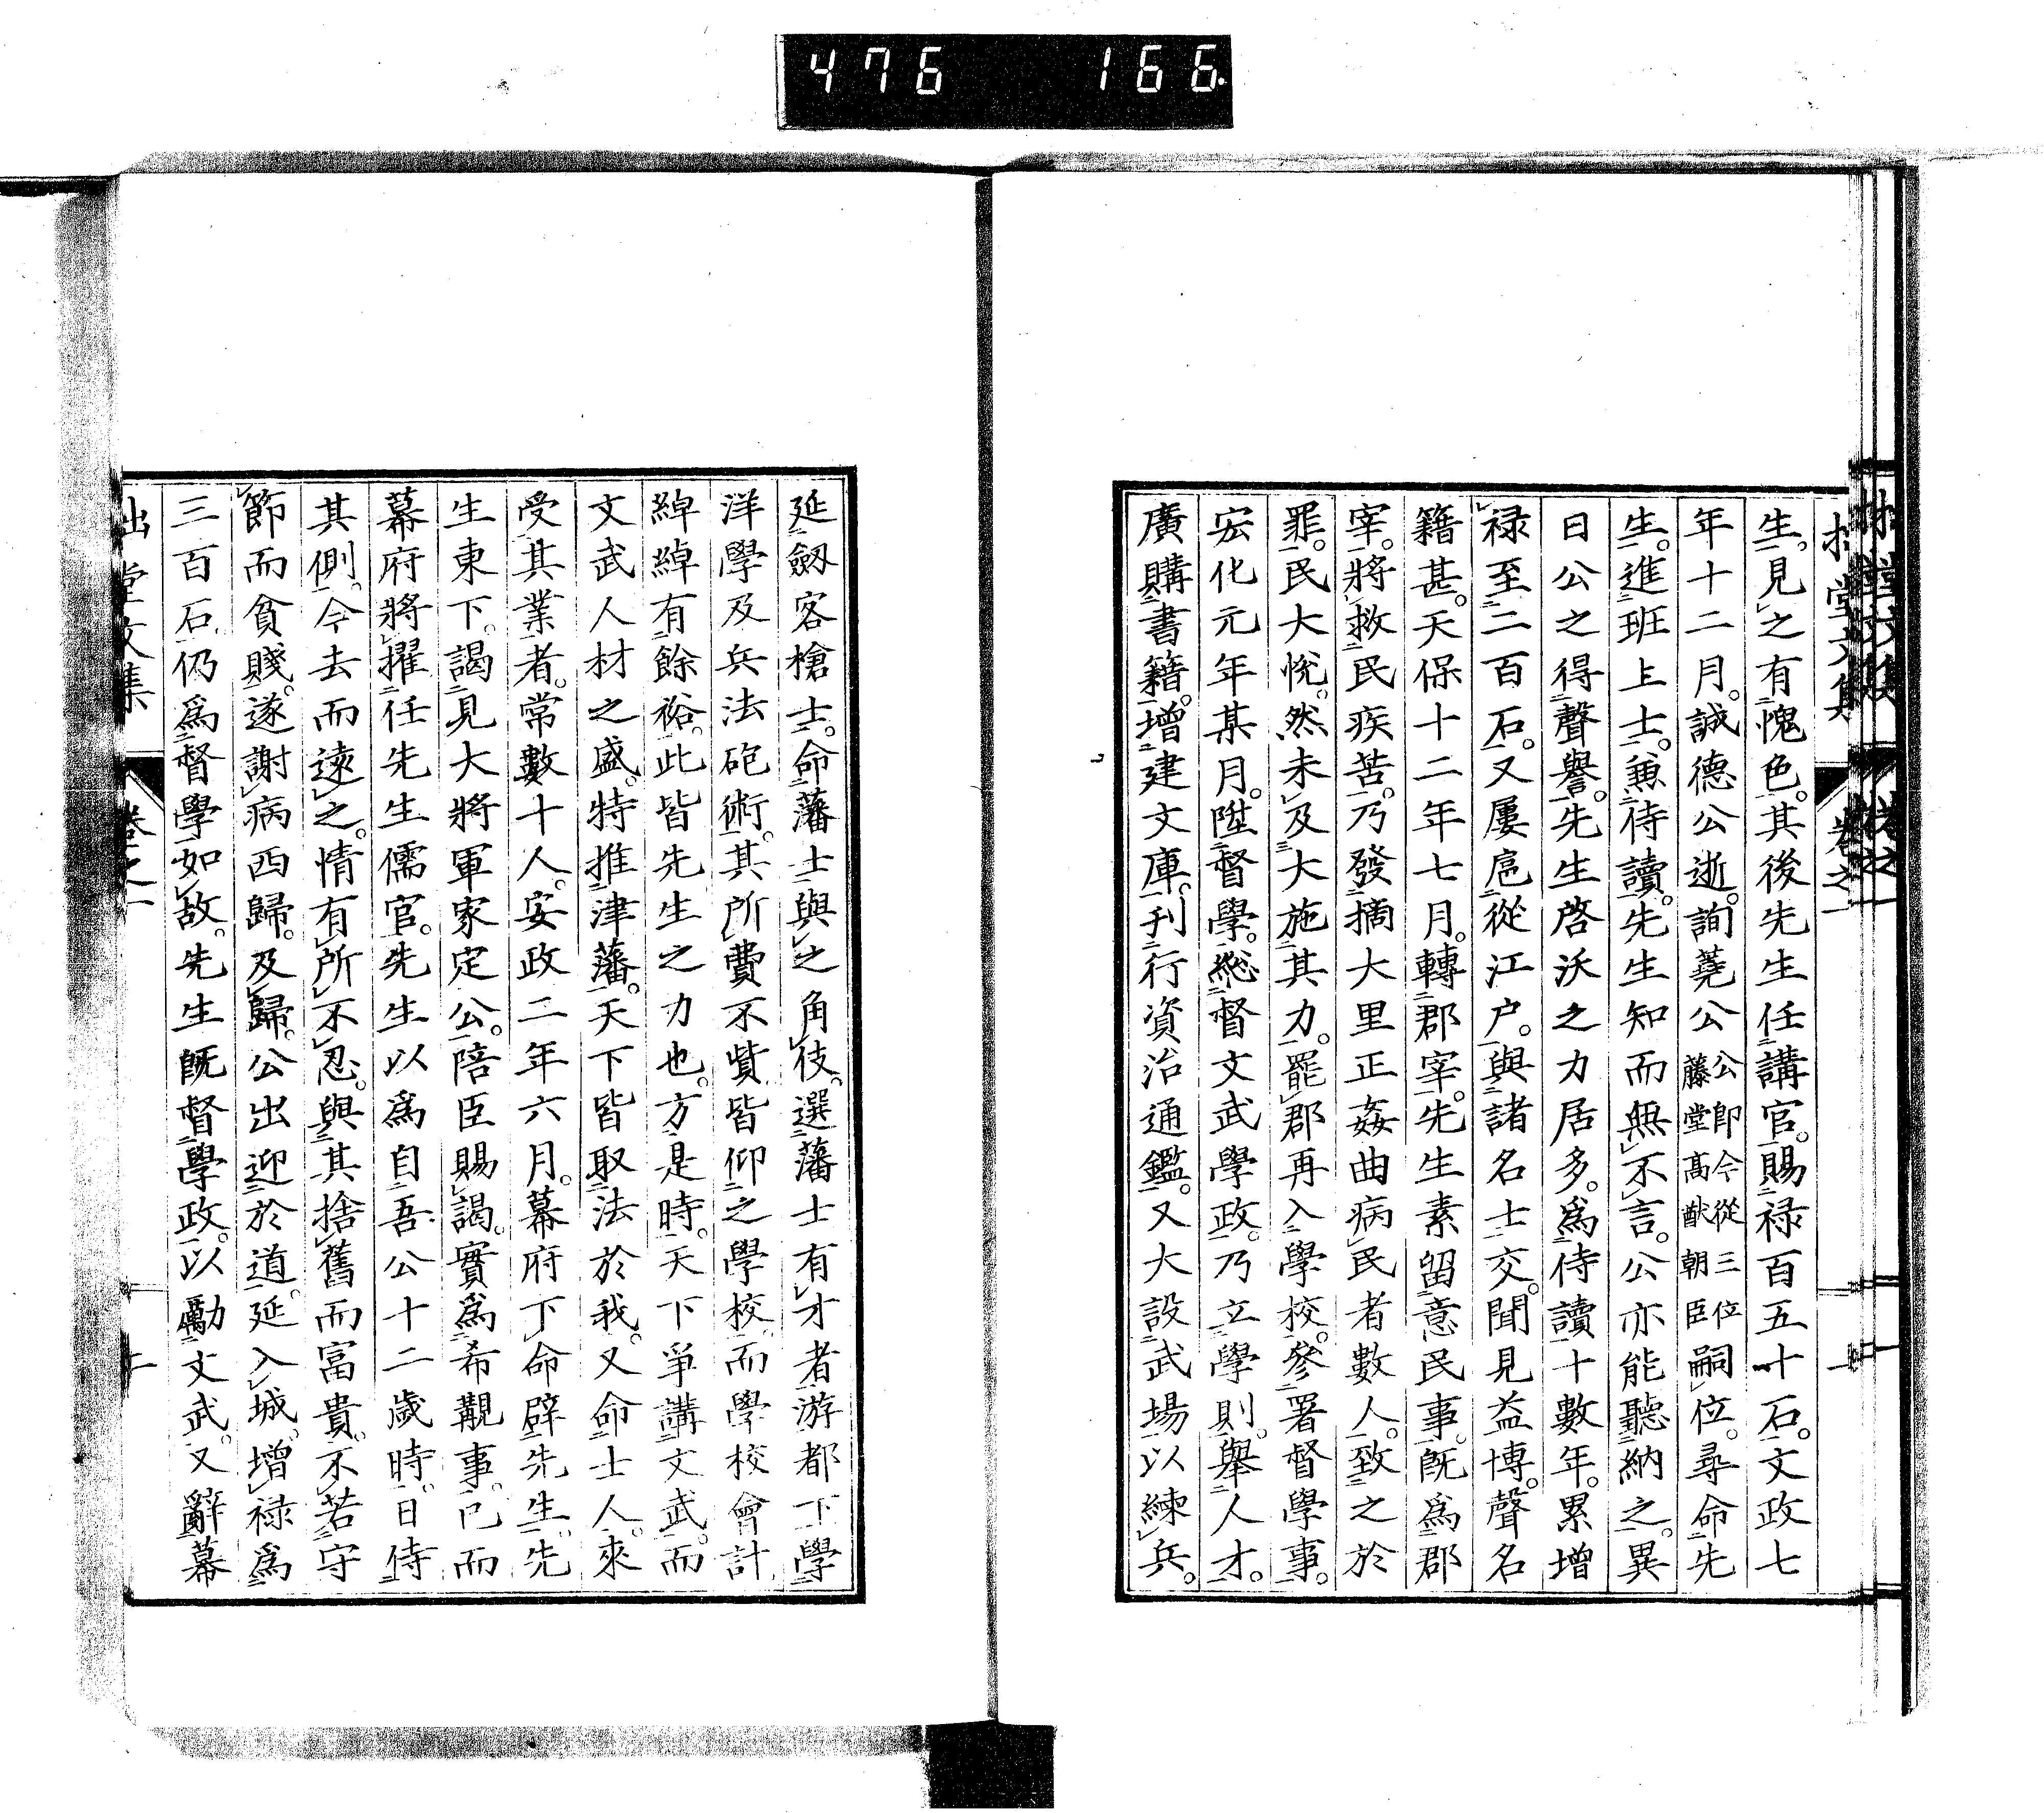 476 166.
生。見之有愧色。其後先生任講官。賜祿百五十石。文政七
年十二月。誠德公逝。詢蕘公公卽今從三位藤堂高猷朝臣嗣位。尋命先
生。進班上士。兼侍讀。先生知而無不言。公亦能聽納之。異
日公之得聲譽。先生啓沃之力居多。爲侍讀十數年。累增
祿至二百石。又屢扈從江戶。與諸名士交。聞見益博。聲名
籍甚。天保十二年七月。轉郡宰。先生素留意民事。旣爲郡
宰。將救民疾苦。乃發摘大里正姦曲病民者數人。致之於
罪。民大悅。然未及大施其力。罷郡再入學校。參署督學事。
宏化元年某月。陞督學。總督文武學政。乃立學則。舉人才。
廣購書籍。增建文庫。刊行資治通鑑。又大設武場以練兵。
延劔客槍士。命藩士與之角伎。選藩士有才者游都下學
洋學及兵法砲術。其所費不貲皆仰之學校。而學校會計
綽綽有餘裕。此皆先生之力也。方是時。天下爭講文武。而
文武人材之盛。特推津藩。天下皆取法於我。又命士人。來
受其業者。常數十人。安政二年六月。幕府下命辟先生。先
生東下。謁見大將軍家定公。陪臣賜謁。實爲希覯事。已而
幕府將擢任先生儒官。先生以爲自吾公十二歲時。日侍
其側。今去而遠之。情有所不忍。與其捨舊而富貴。不若守
節而貧賤。遂謝病西歸。及歸。公出迎於道。延入城。增祿爲
三百石。仍爲督學如故。先生旣督學政。以勵文武。又辭幕
堂文集 卷之一